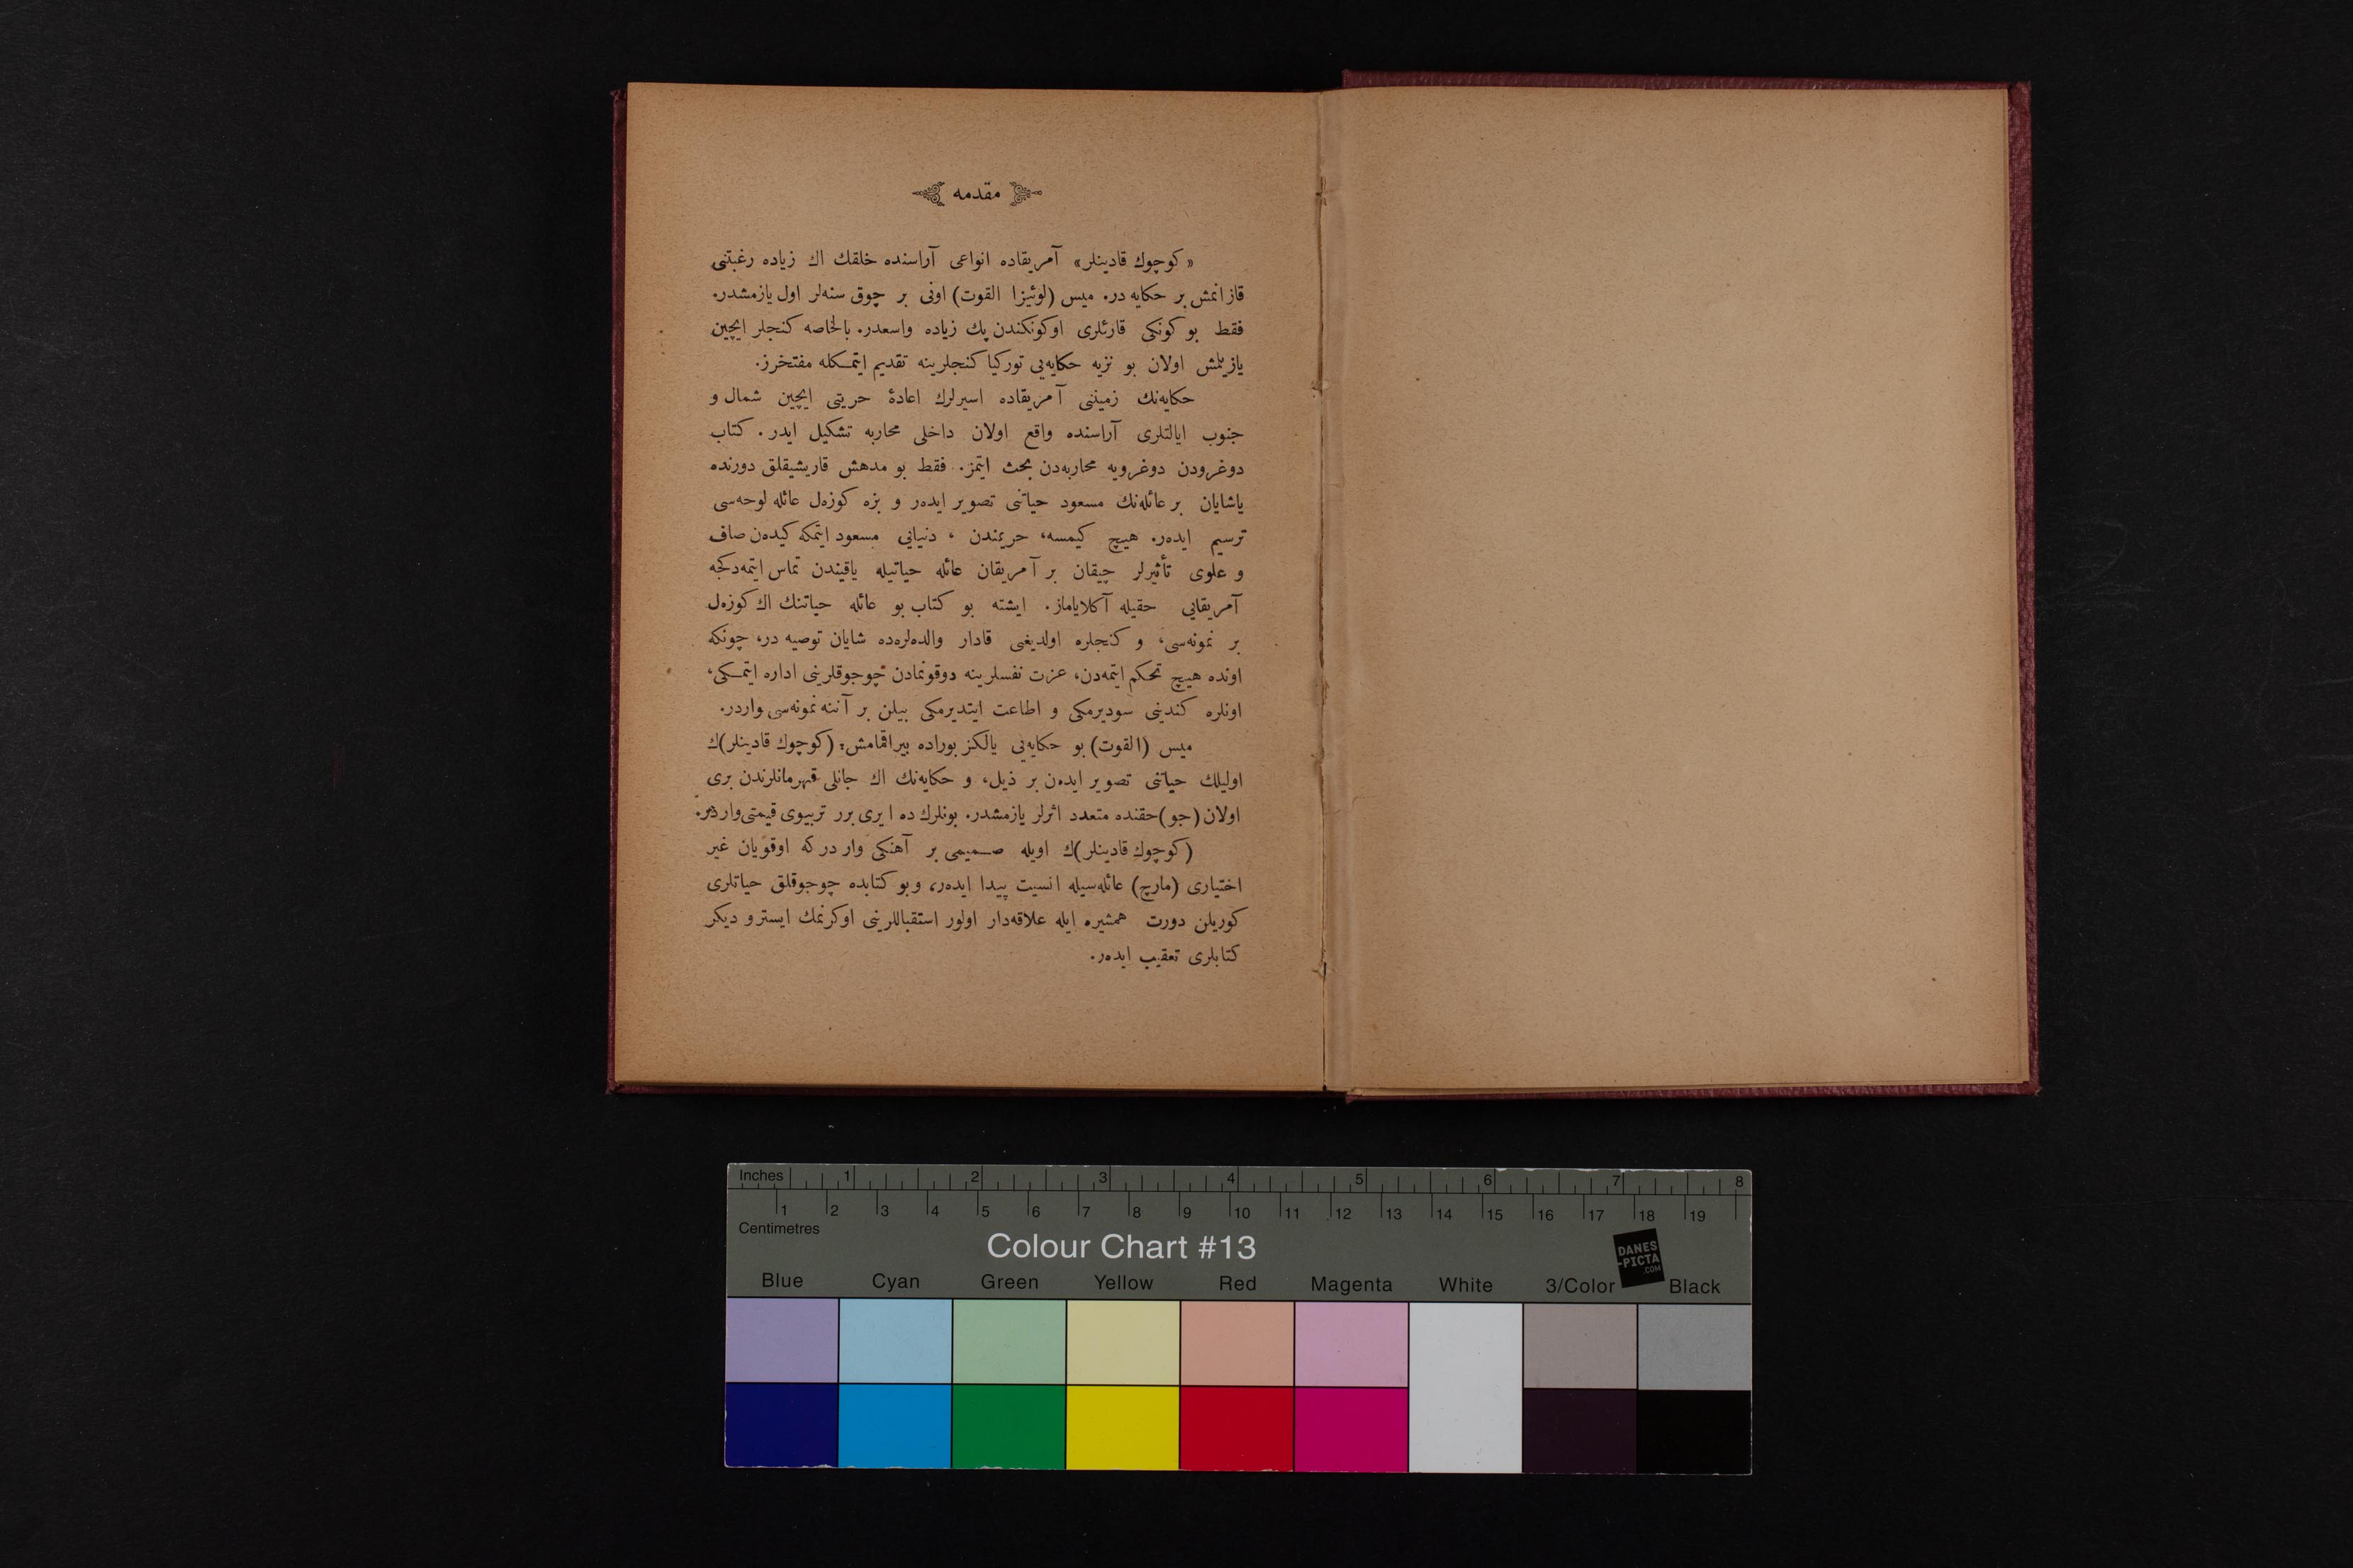 مقدمه
«كوچوك قادينلر» آمريقاده انواعی آراسنده خلقك اك زياده رغبتنی
قازانمش بر حكايه در. ميس (لوئيزا القوت) اونی بر چوق سنه‌لر اول يازمشدر.
فقط بو كونكی قارئلری اوكونكندن پك زياده واسعدر. بالخاصه كنجلر ايچين
يازيلمش اولان بو نزيه حكايه‌يی توركيا كنجلرينه تقديم ايتمكله مفتخرز.
حكايه‌نك زمينی آمريقاده اسيرلرك اعادۀ حريتی ايچين شمال و
جنوب ايالتلری آراسنده واقع اولان داخلی محاربه تشكيل ايدر. كتاب
دوغرودن دوغرويه محاربه‌دن بحث ايتمز. فقط بو مدهش قاريشيقلق دورنده
ياشايان بر عائله‌نك مسعود حياتنی تصوير ايده‌ر و بزه كوزه‌ل عائله لوحه‌سی
ترسيم ايده‌ر. هيچ كيمسه، حريمندن ، دنيايی مسعود ايتمكه كيده‌ن صاف
و علوی تأثيرلر چيقان بر آمريقان عائله حياتيله ياقيندن تماس ايتمه‌دكجه
آمريقايی حقيله آكلاياماز. ايشته بو كتاب بو عائله حياتنك اك كوزه‌ل
بر نمونه‌سی، و كنجلره اولديغی قادار والده‌لره‌ده شايان توصيه در، چونكه
اونده هيچ تحكم ايتمه‌دن، عزت نفسلرينه دوقونمادن چوجوقلرينی اداره ايتمكی،
اونلره كندينی سوديرمكی و اطاعت ايتديرمكی بيلن بر آننه نمونه‌سی واردر.
ميس (القوت) بو حكايه‌يی يالكز بوراده بيراقمامش؛ (كوچوك قادينلر)ك
اوليلك حياتنی تصوير ايده‌ن بر ذيل، و حكايه‌نك اك جانلی قهرمانلرندن بری
اولان (جو) حقنده متعدد اثرلر يازمشدر. بونلرك ده ايری برر تربيوی قيمتی واردر.
(كوچوك قادينلر)ك اويله صميمی بر آهنكی واردركه اوقويان غير
اختياری (مارچ) عائله‌سيله انسيت پيدا ايده‌ر، و بو كتابده چوجوقلق حياتلری
كوريلن دورت همشيره ايله علاقه‌دار اولور استقباللرينی اوكرنمك ايستر و ديكر
كتابلری تعقيب ايده‌ر.
Inches 1 2 3 4 5 6 7 8
1 2 3 4 5 6 7 8 9 10 11 12 13 14 15 16 17 18 19
Centimetres
Colour Chart #13
DANES
-PICTA
.COM
Blue Cyan Green Yellow Red Magenta White 3/Color Black